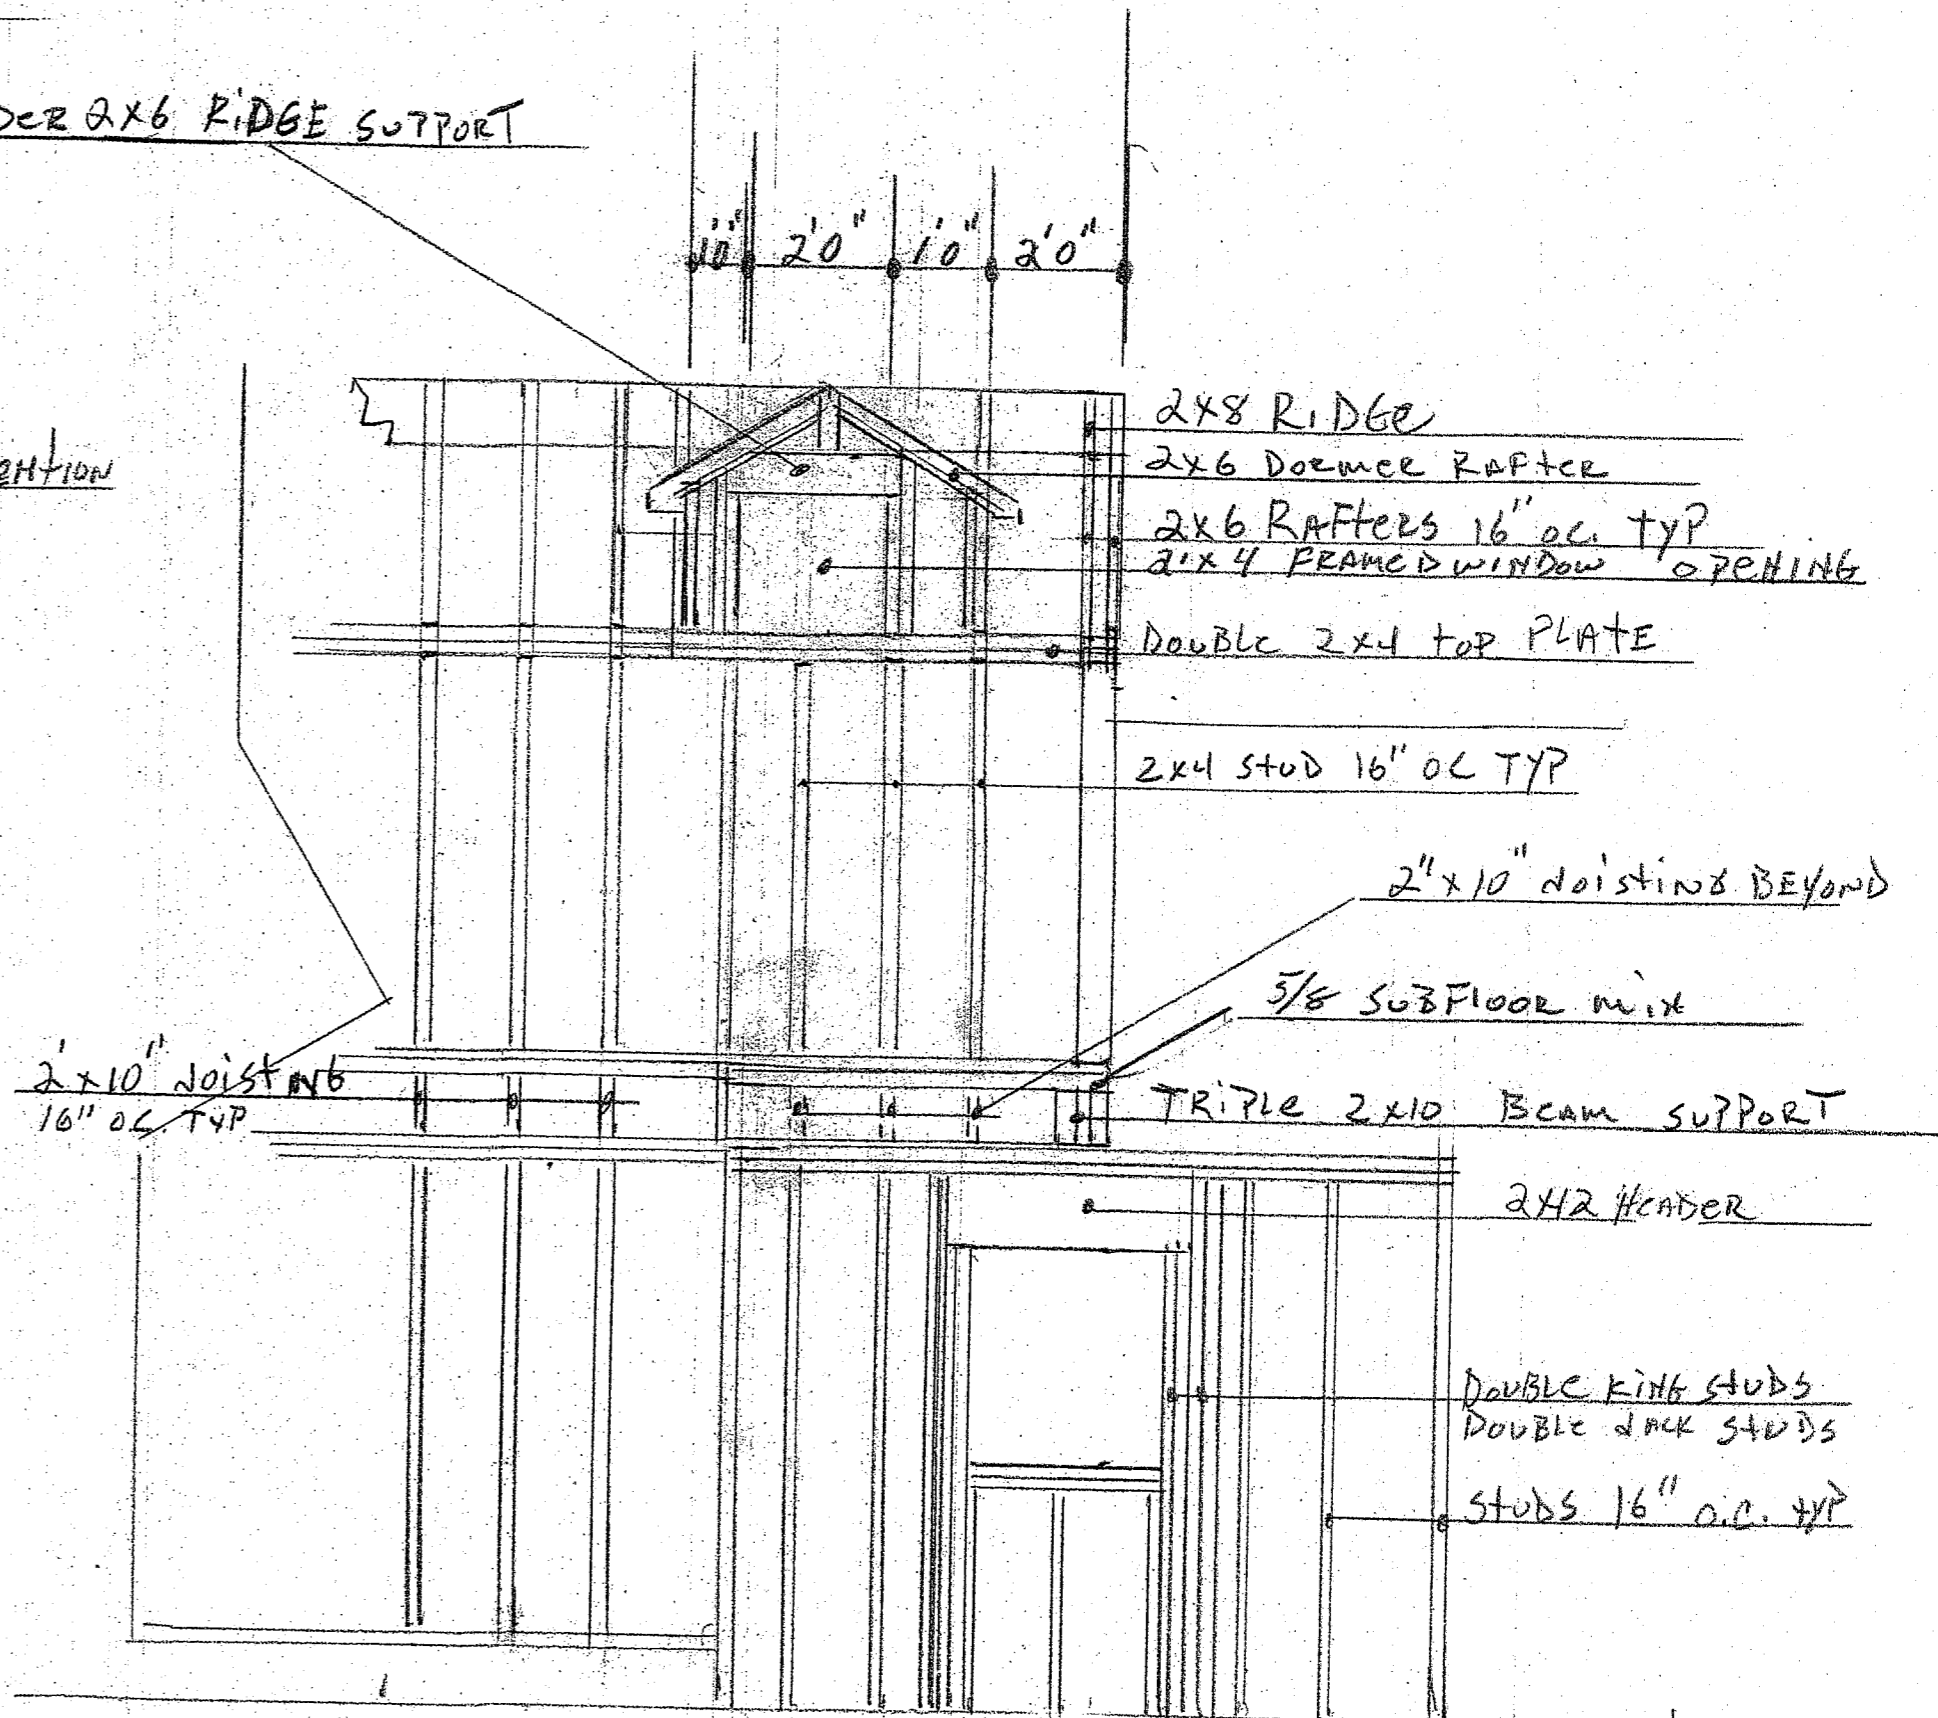 DER 2X6 RiDGE SUPPORT
1'0" 2'0" 1'0" 2'0"
2X8 RiDGe
2X6 Dormer Rafter
2X6 RAFters 16" oc. typ
2'x 4 FRAMED WINDOW OPENING
DOUBLE 2X4 top PLATE
2X4 StuD 16" OC TYP
2"x10" Joisting BEYOND
5/8 SUBFLOOR mix
2'x10" Joisting
16" OC TYP
TRiPLe 2X10 BEAM SUPPORT
2X12 HEADER
DOUBLE KING STUDS
DOUBLE JACK STUDS
STUDS 16" O.C. typ